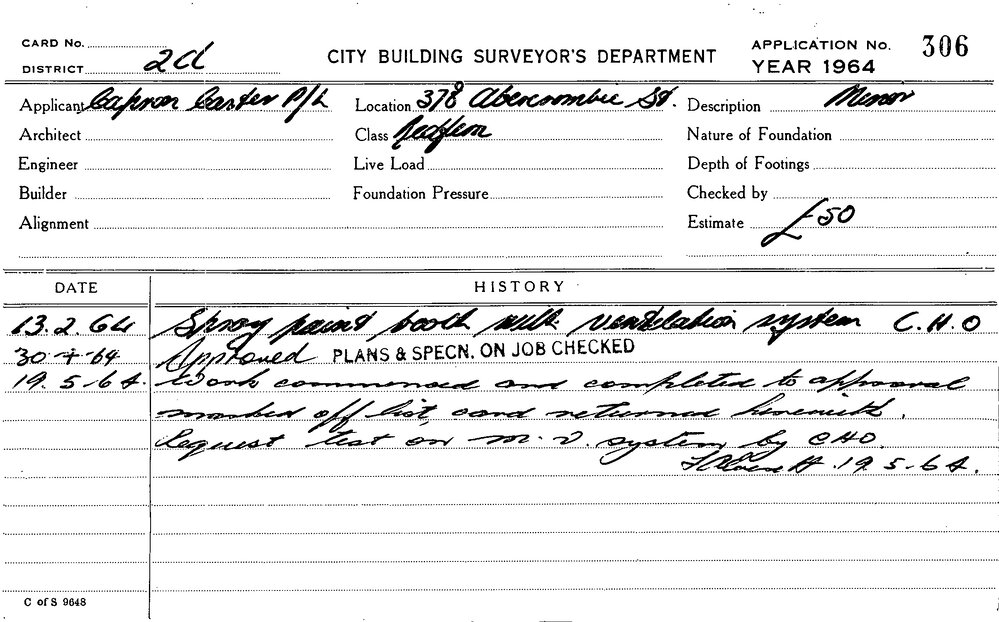 CARD No.
DISTRICT 2d
CITY BUILDING SURVEYOR'S DEPARTMENT
APPLICATION No. 306
YEAR 1964
Applicant Capron Carter P/L
Location 378 Abercrombie St.
Description Minor
Architect
Class Redfern
Nature of Foundation
Engineer
Live Load
Depth of Footings
Builder
Foundation Pressure
Checked by
Alignment
Estimate £50
DATE
HISTORY
13.2.64 Spray paint booth with ventilation system C.H.O
30-4-64 Approved PLANS & SPECN. ON JOB CHECKED
19.5.64. Work commenced and completed to approval
marked off list, card returned herewith.
Request test on m.v. system by CHO.
19.5.64.
C of S 9648